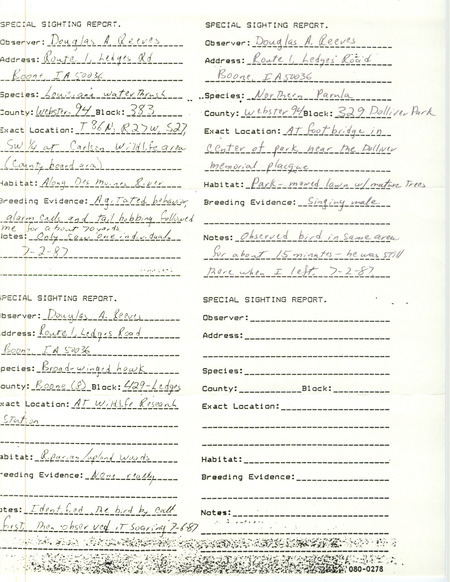 SPECIAL SIGHTING REPORT.
Observer: Douglas A. Reeves
Address: Route 1, Ledges Rd
Boone, IA 50036
Species: Louisiana waterthrush
County: Webster 94 Block: 383
Exact Location: T86N, R27W, S27,
SW 1/4 at Carlson Wildlife area
(County board area)
Habitat: Along Des Moines River
Breeding Evidence: Agitated behavior,
alarm calls and tail bobbing followed
me for about 70 yards
Notes: Only saw one individual
7-2-87
SPECIAL SIGHTING REPORT.
Observer: Douglas A. Reeves
Address: Route 1, Ledges Road
Boone, IA 50036
Species: Northern Parula
County: Webster 94 Block: 329 Dolliver Park
Exact Location: AT footbridge in
center of park near the Dolliver
memorial plaque
Habitat: Park - mowed lawn w/ mature Trees
Breeding Evidence: Singing male
Notes: Observed bird in same area
for about 15 minutes - he was still
there when I left 7-2-87
SPECIAL SIGHTING REPORT.
Observer: Douglas A. Reeves
Address: Route 1, Ledges Road
Boone IA 50036
Species: Broad-winged hawk
County: Boone (8) Block: 429-Ledges
Exact Location: AT Wildlife Research
Station
Habitat: Riparian/upland woods
Breeding Evidence: None really
Notes: Identified the bird by call
first, then observed it soaring 7-6-87
SPECIAL SIGHTING REPORT.
Observer:
Address:
Species:
County: Block:
Exact Location:
Habitat:
Breeding Evidence:
Notes:
080-0278